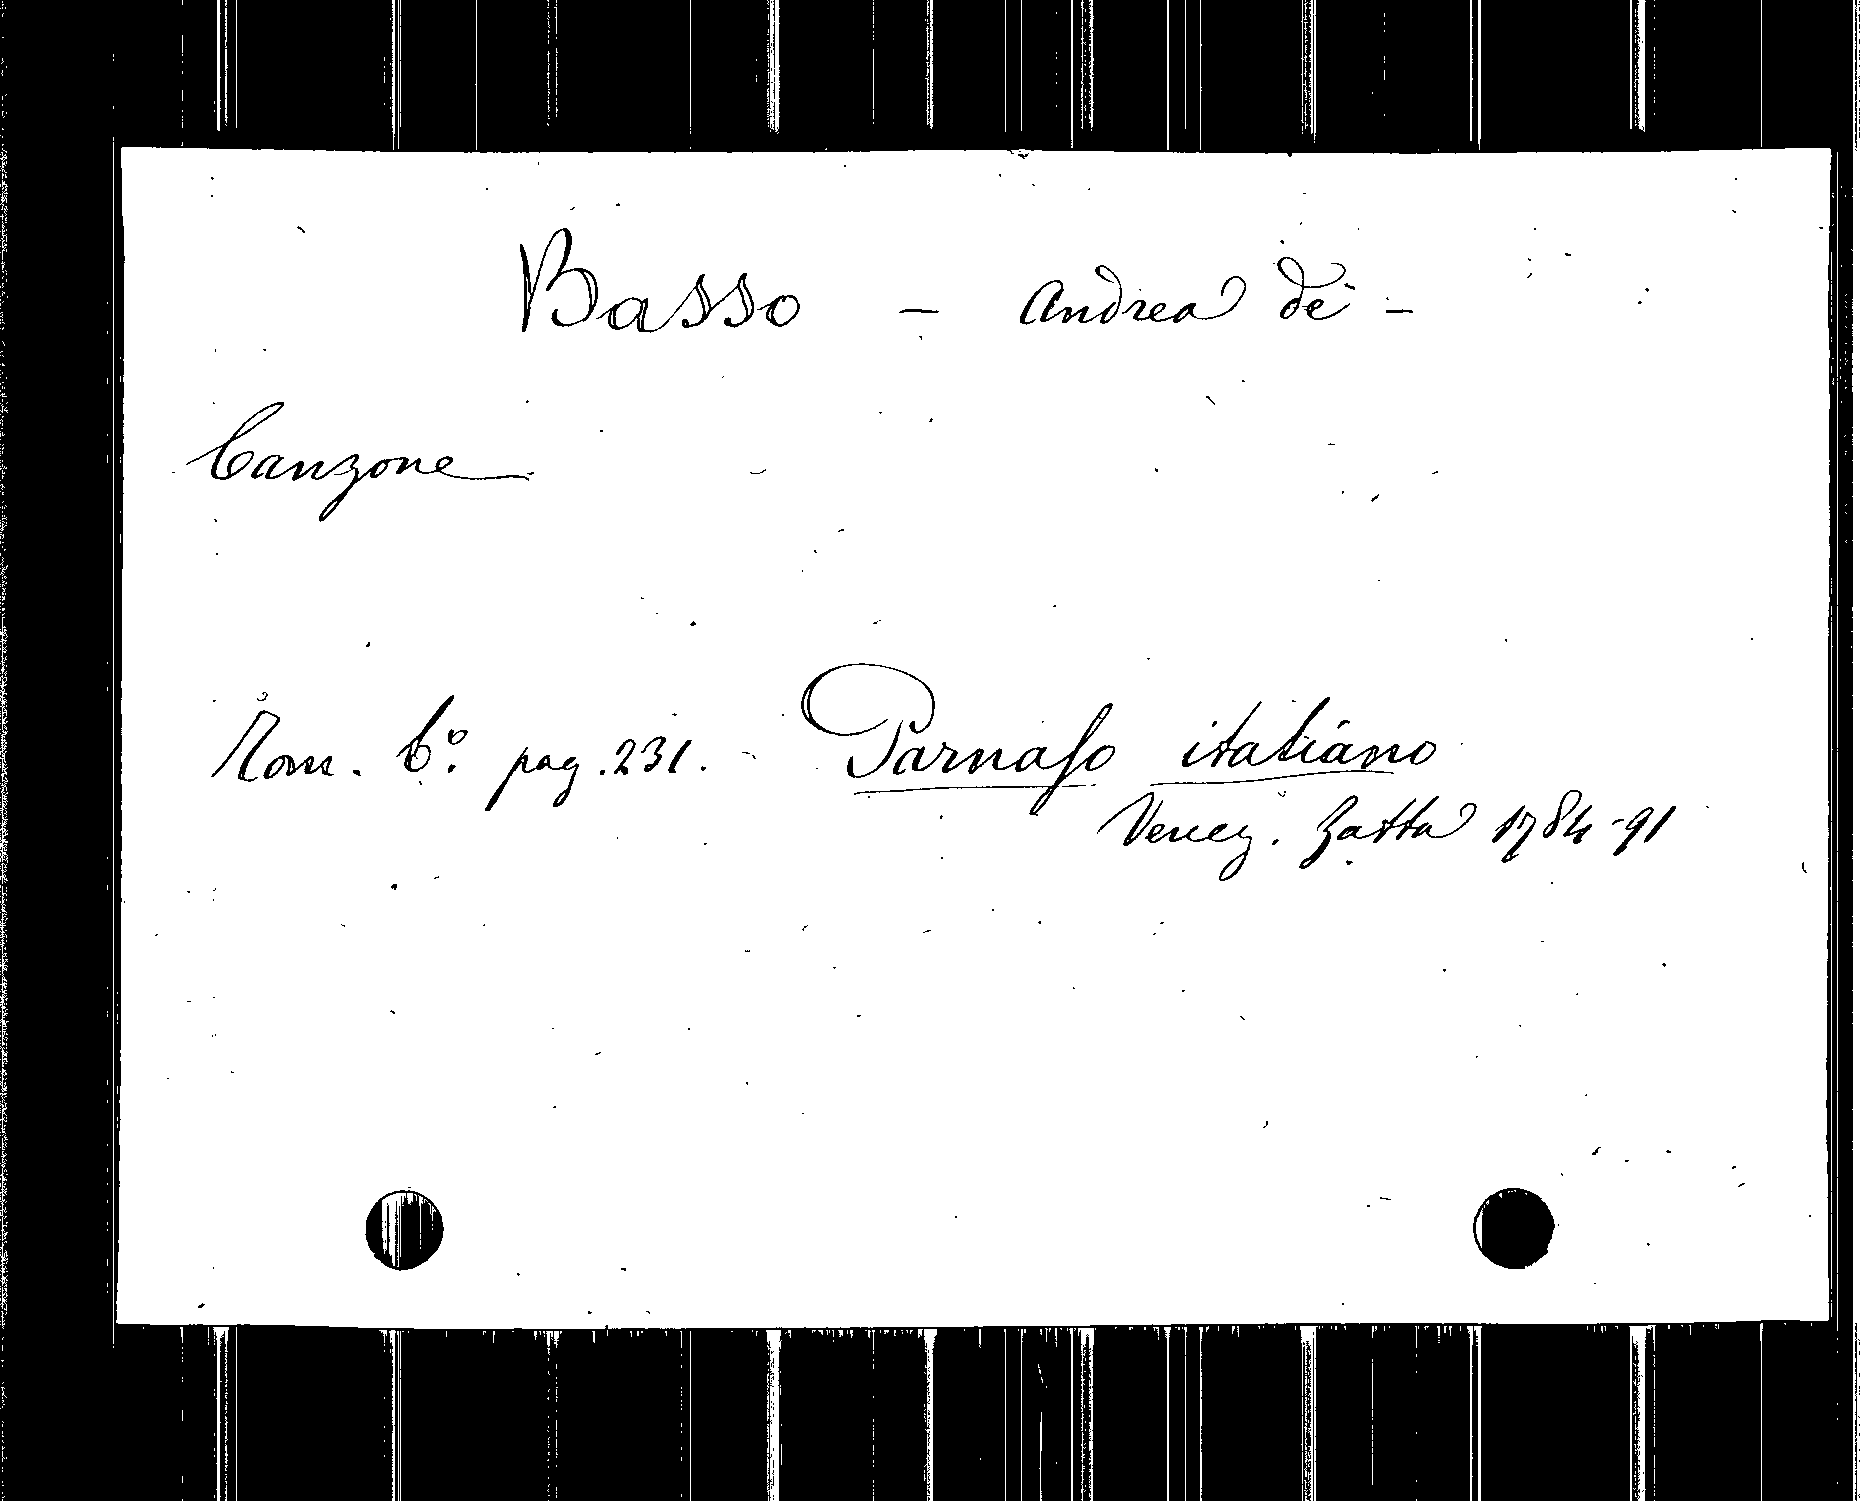 Basso - Andrea de' -
Canzone
Tom. 6º. pag. 231. - Parnaso italiano
Venez. Zatta 1784-91